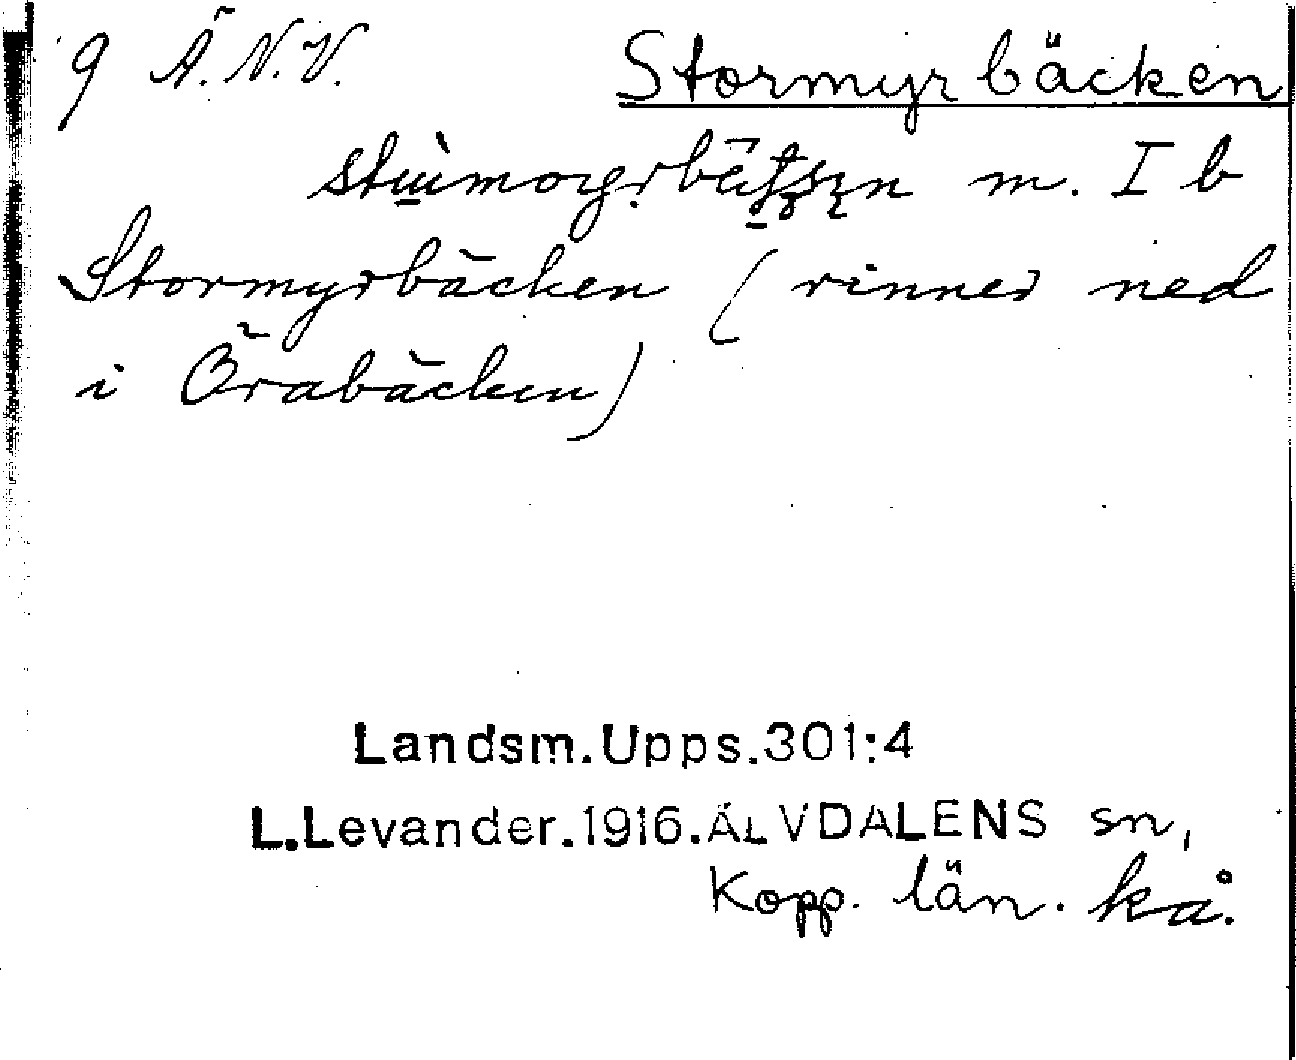 9 Ä.N.V. Stormyrbäcken
m. I b
Stormyrbäcken (rinner ned
i Örabäcken)
Landsm.Upps.301:4
L.Levander.1916.ÄLVDALENS sn,
Kopp. län. kå.